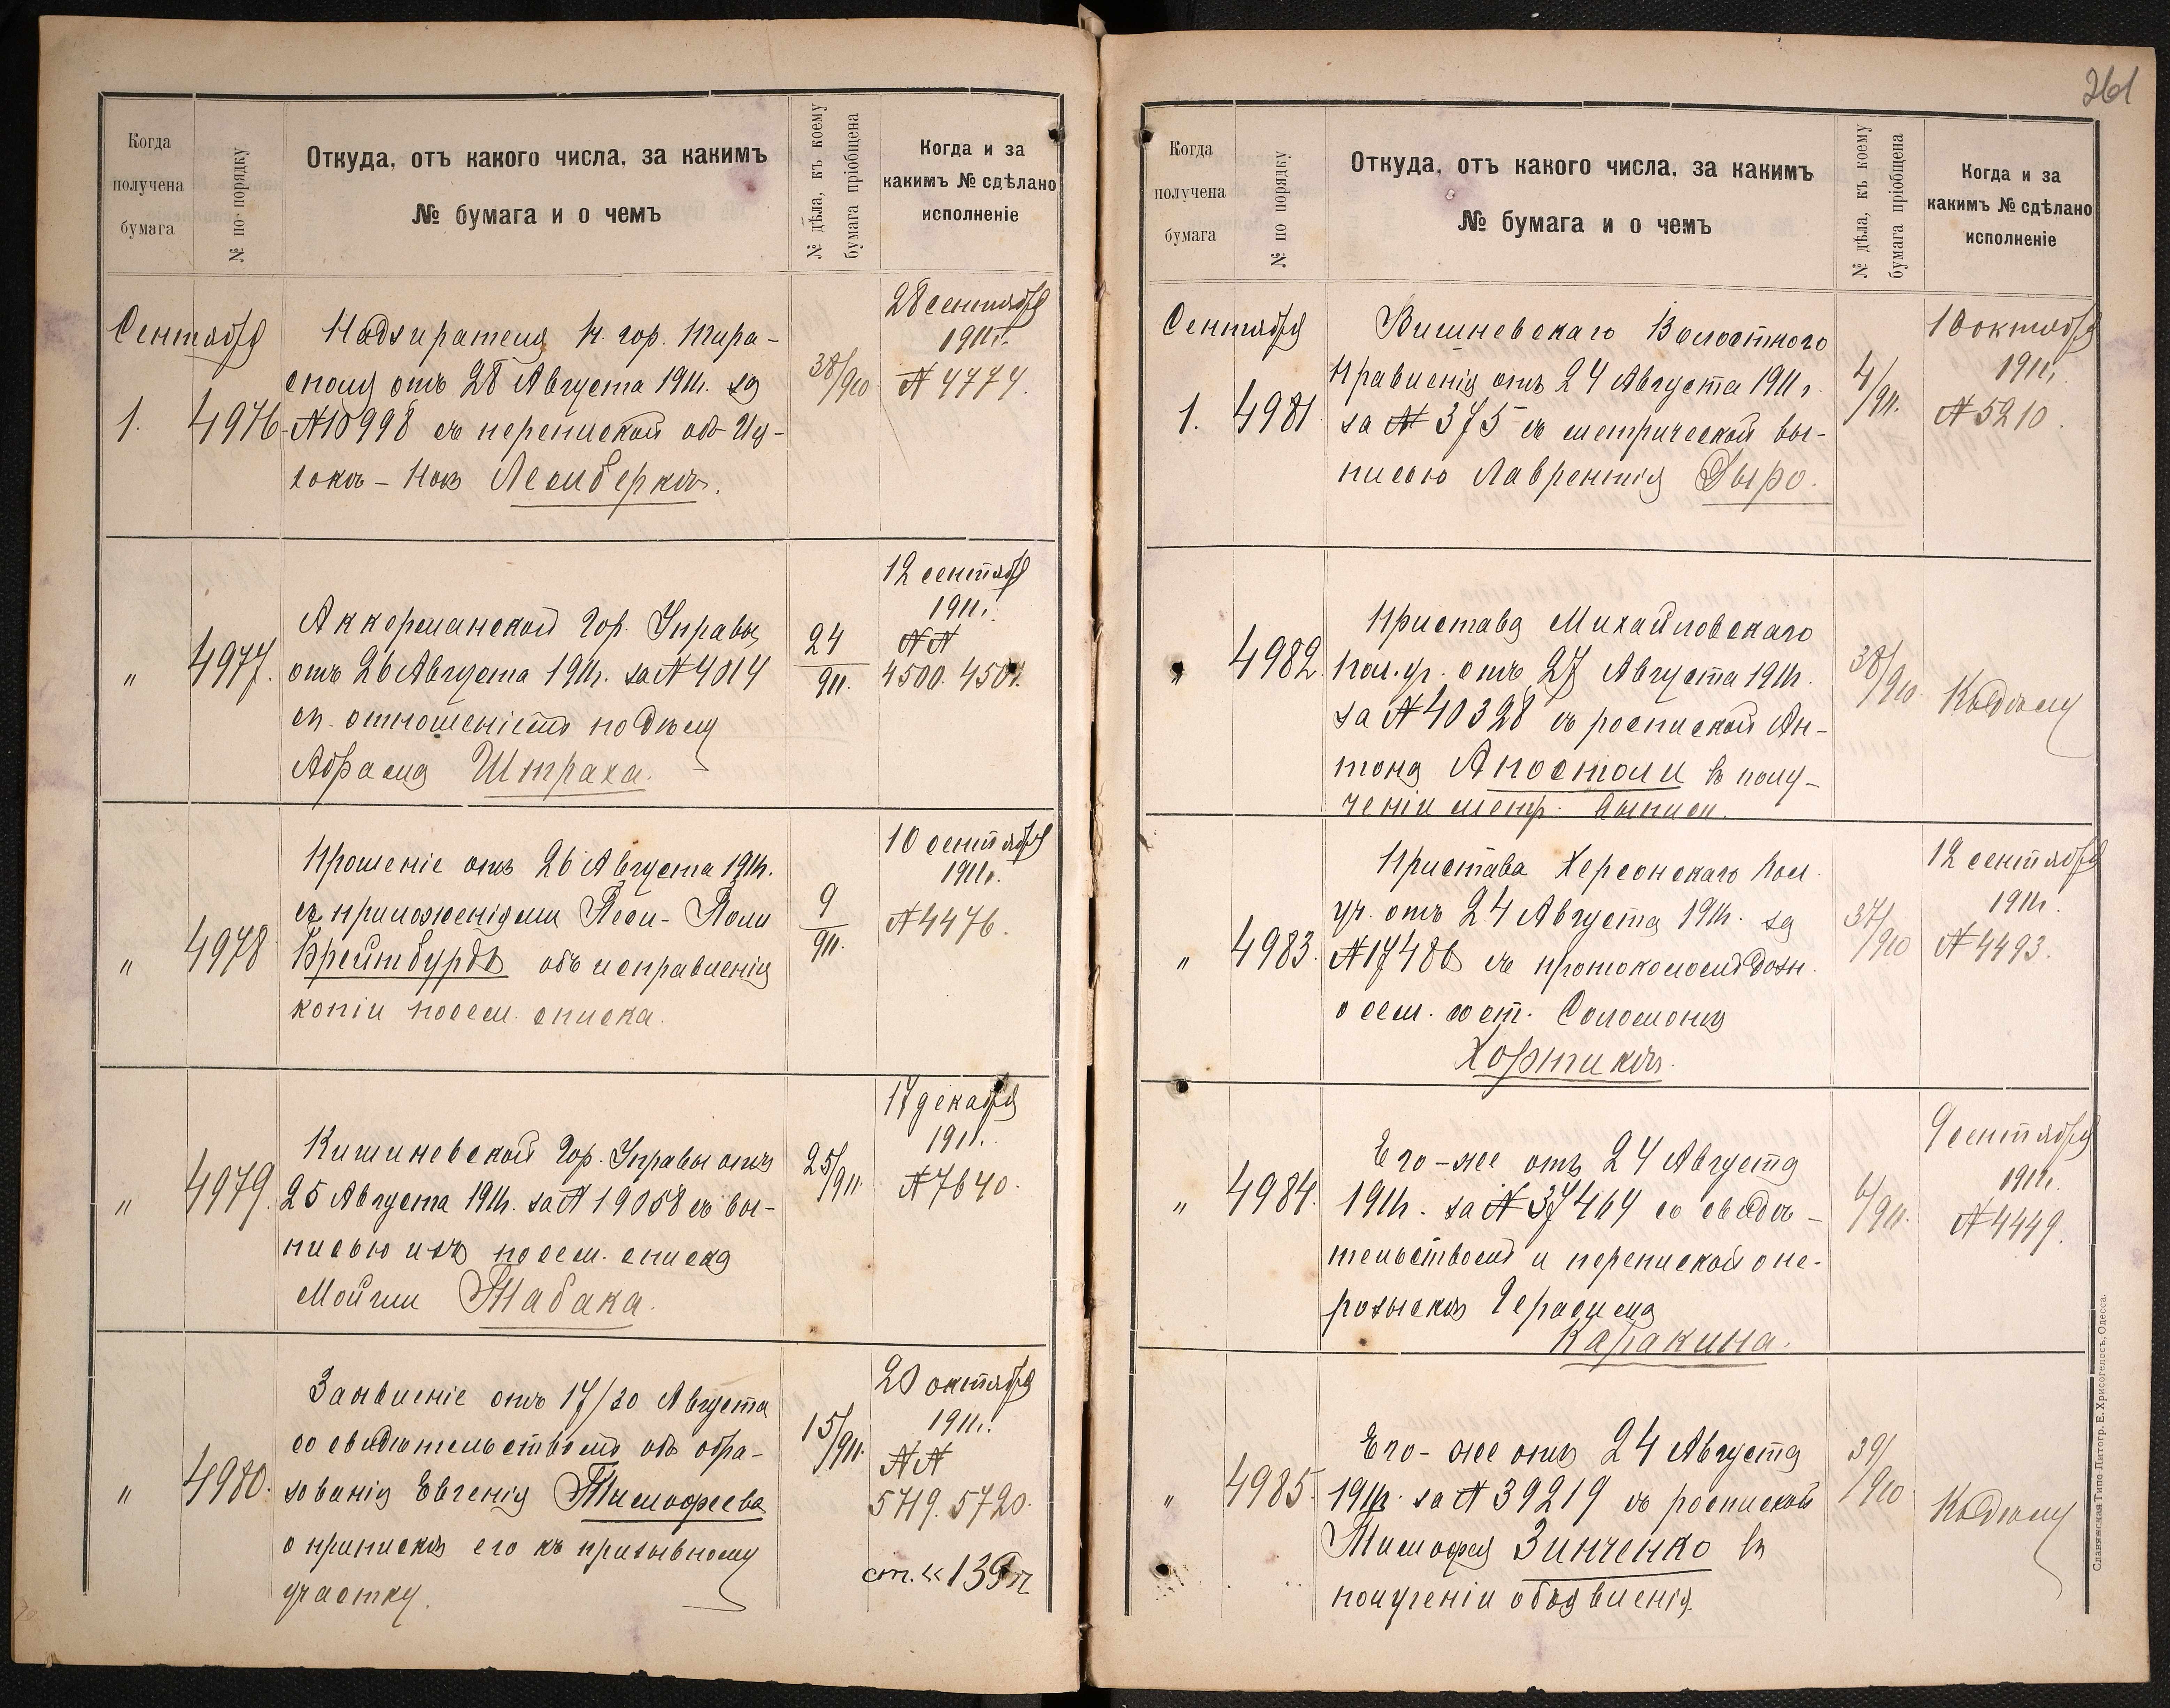 Когда получена бумага
№ по порядку
Откуда, отъ какого числа, за какимъ
№ бумага и о чемъ
№ дѣла, къ коему бумага пріобщена
Когда и за какимъ № сдѣлано исполненіе
Сентября
1.
4976
Надзирателя П. гор. Тира-
споля отъ 28 Августа 1911г. за
№10998 съ перепиской об
Лемберкъ.
38/910
28 сентября
1911г.
№ 4774.
"
4977.
Аккерманской Гор. Управы
отъ 26 Августа 1911г. за № 4014
съ отношеніемъ по дѣлу
Абрама Штраха.
24/911.
12 сентяб
1911г.
№№
4500. 4501.
"
4978
Прошеніе отъ 26 Августа 1911г.
съ приложеніями
Брейтбурдъ объ исправленіи
копіи посем. списка.
9/911.
10 сентября
1911г.
№ 4476.
"
4979.
Кишиневской Гор. Управы отъ
25 Августа 1911г. за № 19058 съ вы-
писью изъ посем. списка
Мойши Табака.
25/911.
17 декабря
1911г.
№ 7640.
"
4980.
Заявленіе отъ 17/30 Августа
со свидѣтельствомъ объ обра-
зованіи Евгенія Тимофеева
о припискѣ его къ призывному
участку.
15/911.
20 октября
1911г.
№№
5719. 5720.
261
Когда получена бумага
№ по порядку
Откуда, отъ какого числа, за какимъ
№ бумага и о чемъ
№ дѣла, къ коему бумага пріобщена
Когда и за какимъ № сдѣлано исполненіе
Сентября
1.
4981
Вишневскаго Волостного
Правленія отъ 24 Августа 1911 г.
за № 375 съ метрической вы-
писью Лаврентія Дыро.
4/911.
10 октября
1911г.
№ 5210.
"
4982.
Пристава Михайловскаго
пол. уч. отъ 27 Августа 1911г.
за № 40328 съ роспиской Ан-
тона Апостоли въ полу-
ченіи метр. выписи.
38/910.
Къ дѣлу
"
4983.
Пристава Херсонскаго пол.
уч. отъ 24 Августа 1911г. за
№ 17486 съ протоколомъ дозн.
о сем. сост. Соломона
Хортикъ.
37/910
12 сентября
1911г.
№ 4493.
"
4984.
Его-же отъ 24 Августа
1911г. за № 37464 со свидѣ-
тельствомъ и перепиской о не-
розыскѣ Герасима
Каракина.
6/911.
9 сентября
1911г.
№ 4449.
"
4985.
Его-же отъ 24 Августа
1911г. за № 39219 съ роспиской
Тимофея Зинченко въ
полученіи объявленія.
39/910
Къ дѣлу
Славянская Типо-Литогр. Е. Хрисогелосъ, Одесса.